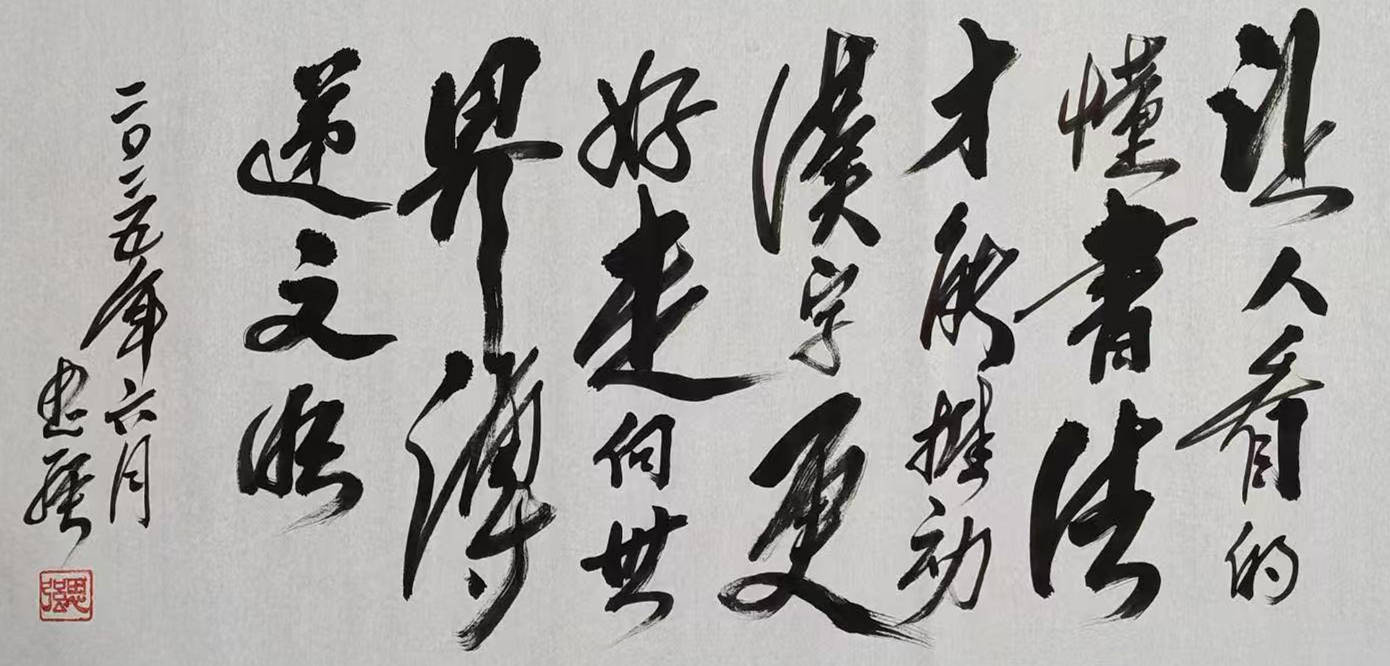 让人看的
懂書法
才能推动
漢字更
好走向世
界傳
递文明
二〇二五年六月
思强
思强